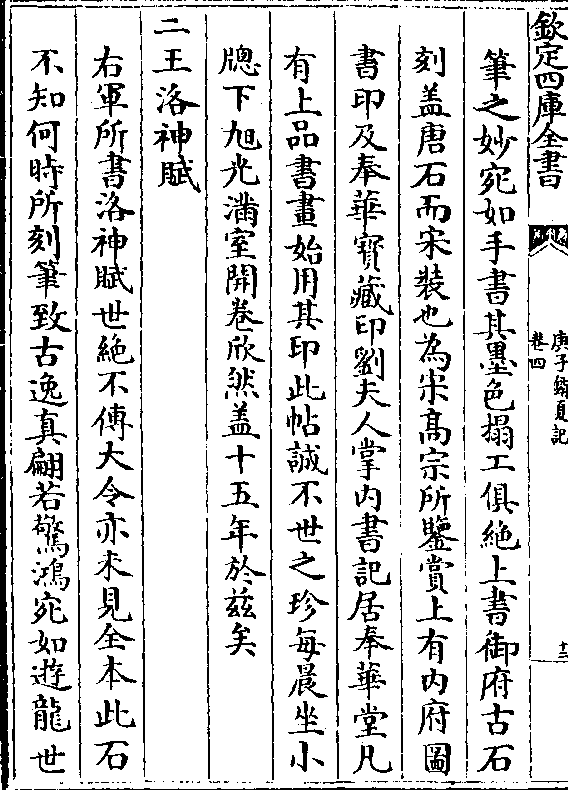 欽定四庫全書
庚子銷夏記
卷四
十三
筆之妙宛如手書其墨色搨工俱絶上書御府古石
刻盖唐石而宋裝也為宋髙宗所鑒賞上有内府圖
書印及奉華寳藏印劉夫人掌内書記居奉華堂凡
有上品書畫始用其印此帖誠不世之珍每晨坐小
牕下旭光滿室開卷欣然盖十五年於兹矣
二王洛神賦
右軍所書洛神賦世絶不傳大令亦未見全本此石
不知何時所刻筆致古逸真翩若驚鴻宛如遊龍世